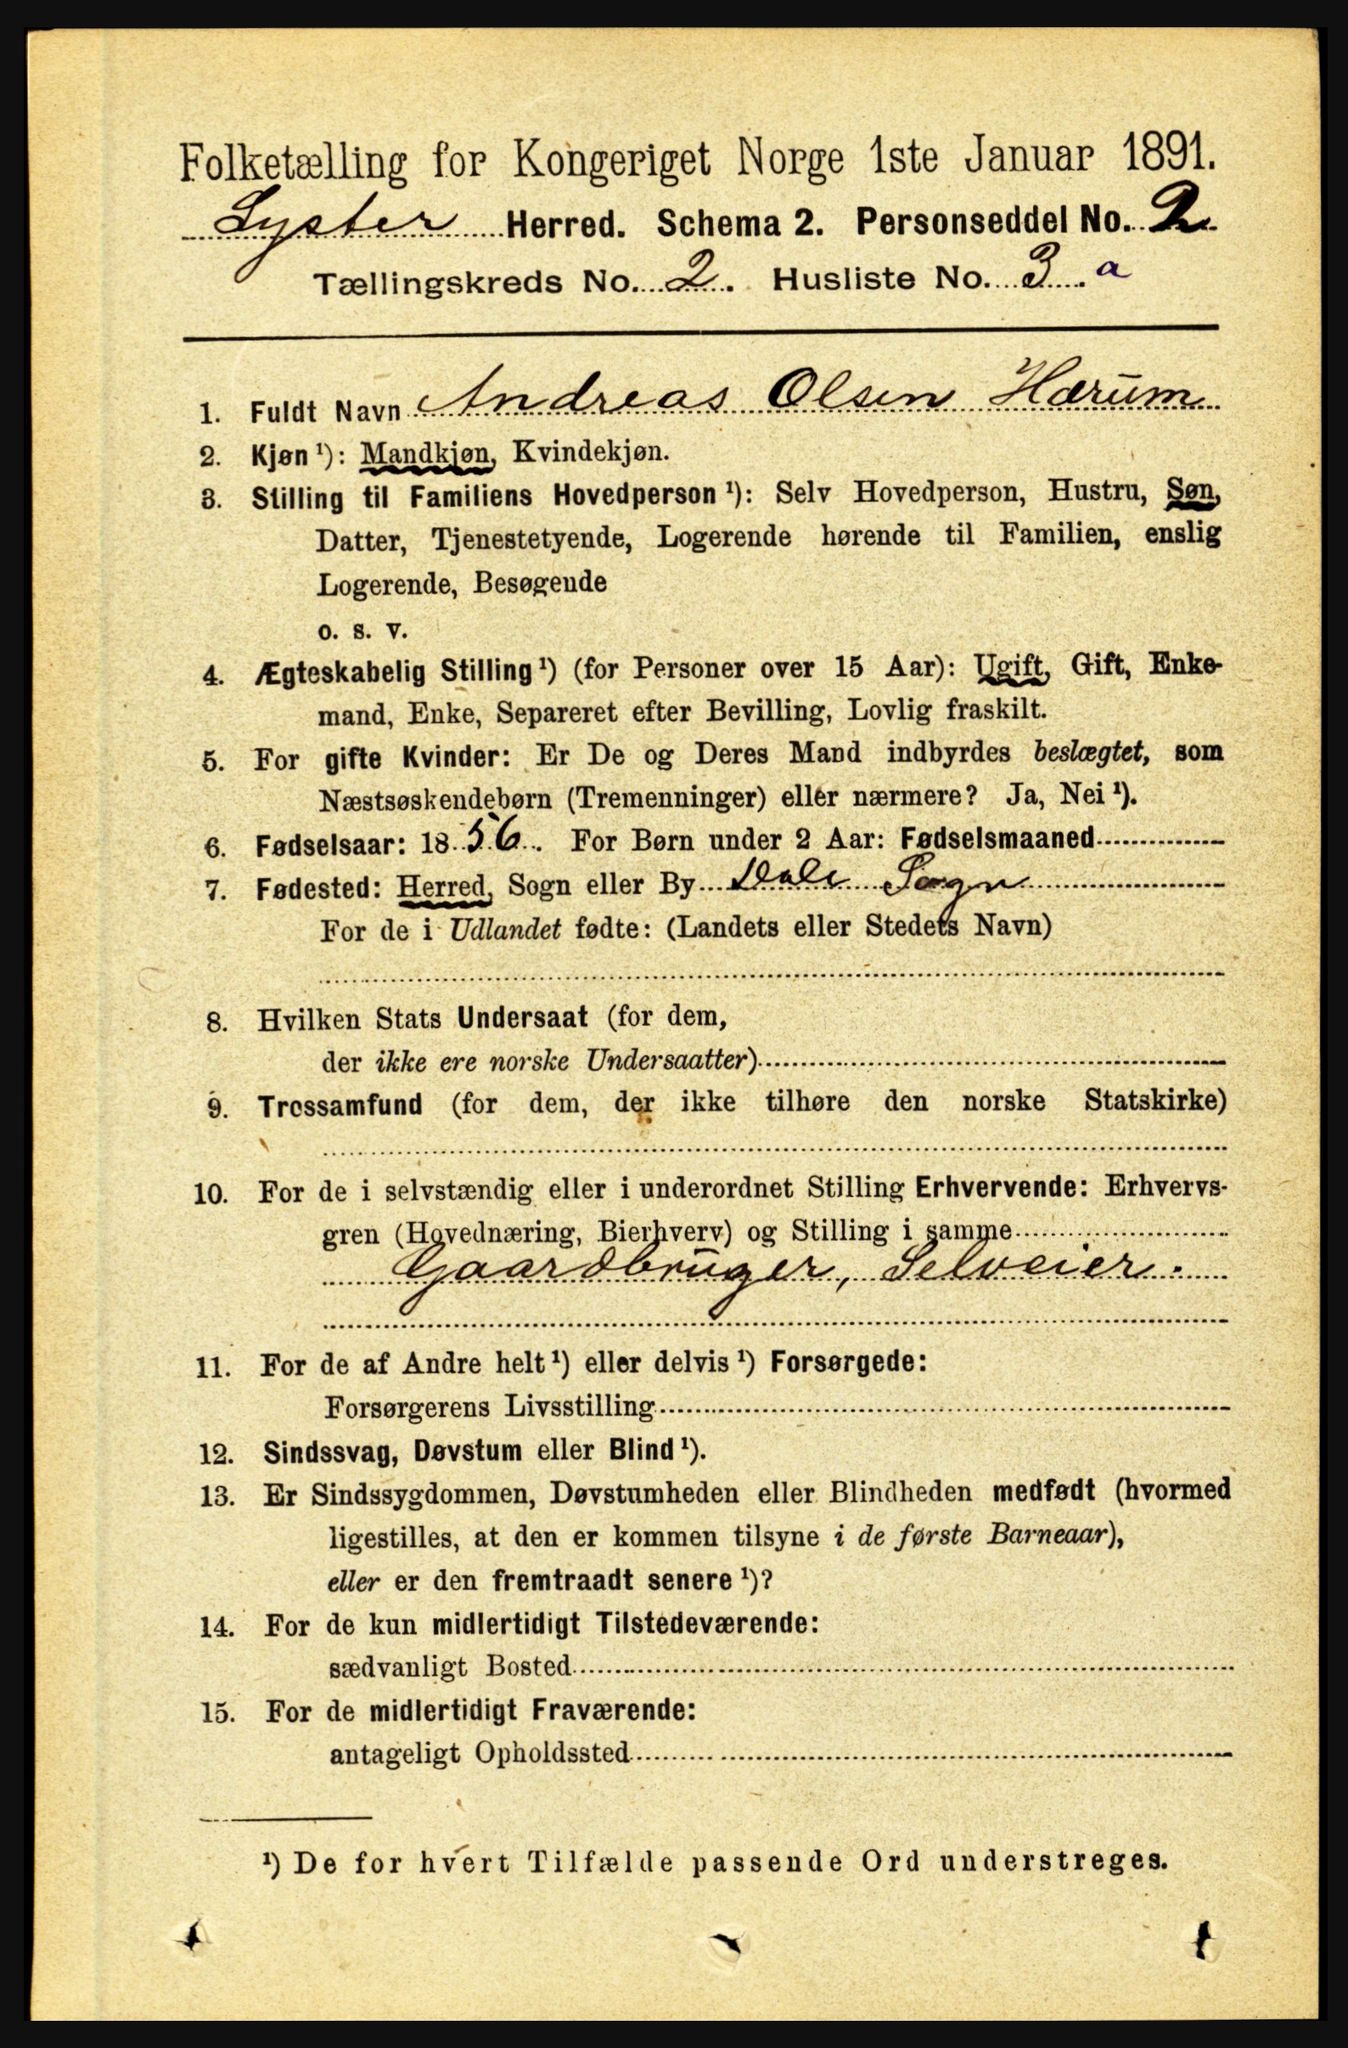 Folketælling for Kongeriget Norge 1ste Januar 1891.
Lyster Herred. Schema 2. Personseddel No. 2
Tællingskreds No. 2. Husliste No. 3. a
1. Fuldt Navn Andreas Olsen Hærum
2. Kjøn ¹): Mandkjøn, Kvindekjøn.
3. Stilling til Familiens Hovedperson ¹): Selv Hovedperson, Hustru, Søn,
Datter, Tjenestetyende, Logerende hørende til Familien, enslig
Logerende, Besøgende
o. s. v.
4. Ægteskabelig Stilling ¹) (for Personer over 15 Aar): Ugift, Gift, Enke-
mand, Enke, Separeret efter Bevilling, Lovlig fraskilt.
5. For gifte Kvinder: Er De og Deres Mand indbyrdes beslægtet, som
Næstsøskendebørn (Tremenninger) eller nærmere? Ja, Nei ¹).
6. Fødselsaar: 1856. For Børn under 2 Aar: Fødselsmaaned
7. Fødested: Herred, Sogn eller By Dale Sogn
For de i Udlandet fødte: (Landets eller Stedets Navn)
8. Hvilken Stats Undersaat (for dem,
der ikke ere norske Undersaatter)
9. Trossamfund (for dem, der ikke tilhøre den norske Statskirke)
10. For de i selvstændig eller i underordnet Stilling Erhvervende: Erhvervs-
gren (Hovednæring, Bierhverv) og Stilling i samme
Gaardbruger, Selveier.
11. For de af Andre helt ¹) eller delvis ¹) Forsørgede:
Forsørgerens Livsstilling
12. Sindssvag, Døvstum eller Blind ¹).
13. Er Sindssygdommen, Døvstumheden eller Blindheden medfødt (hvormed
ligestilles, at den er kommen tilsyne i de første Barneaar),
eller er den fremtraadt senere ¹)?
14. For de kun midlertidigt Tilstedeværende:
sædvanligt Bosted
15. For de midlertidigt Fraværende:
antageligt Opholdssted
¹) De for hvert Tilfælde passende Ord understreges.